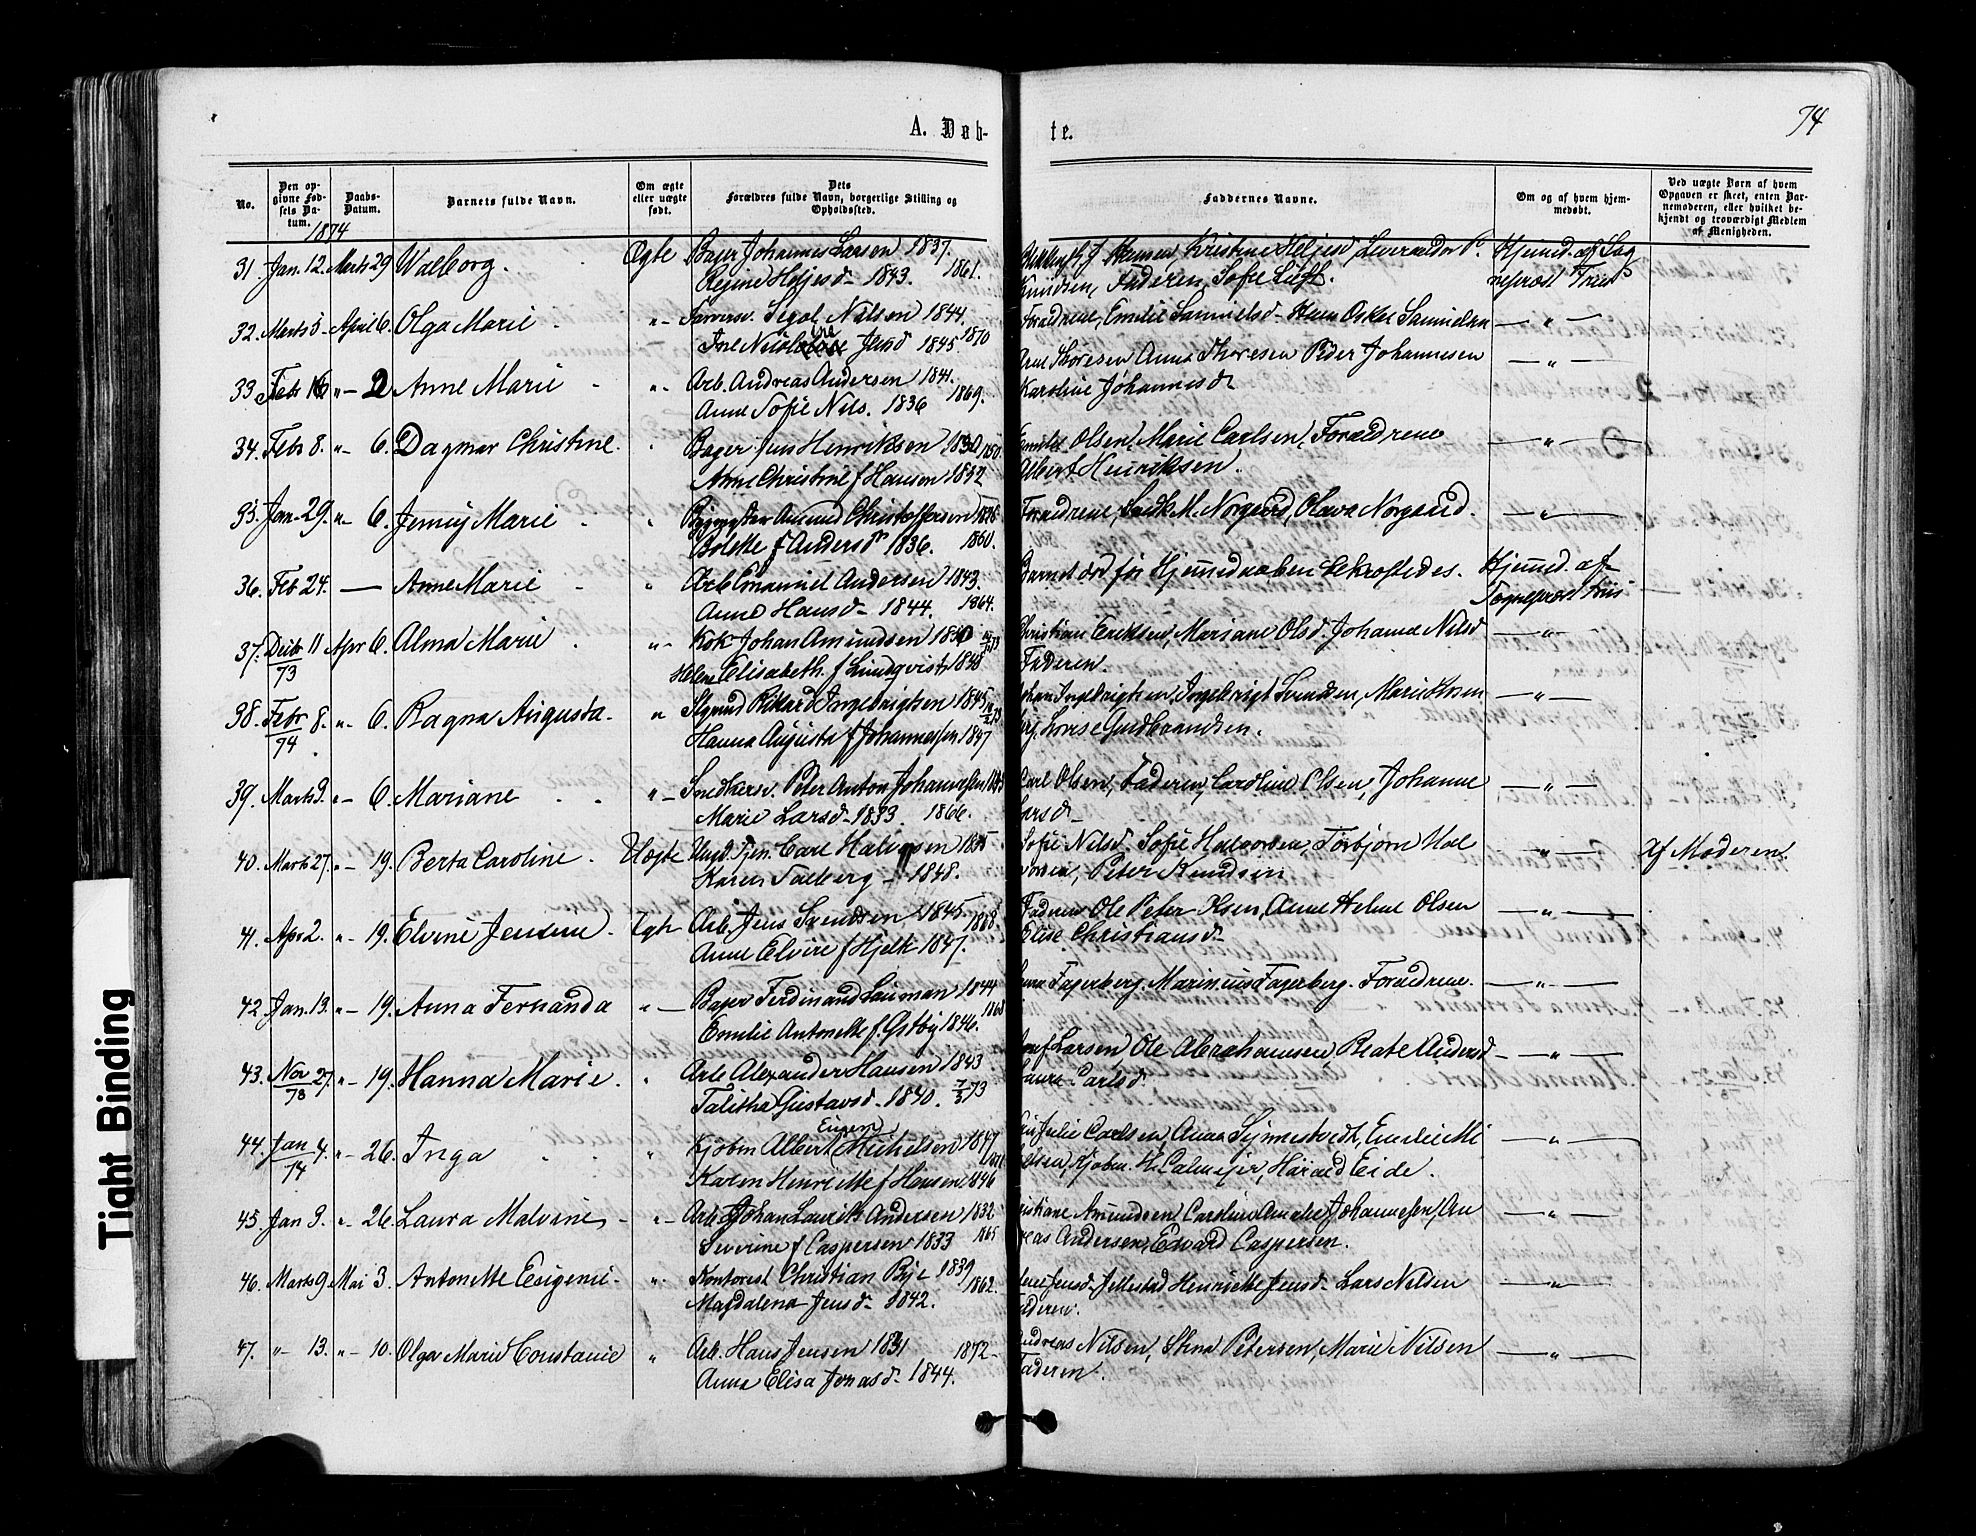 74
A. Døb-
te.
No.
Den op-
givne Fød-
sels Da-
tum.
1874
Daabs-
Datum.
Barnets fulde Navn.
Om ægte
eller uægte
født.
Dets
Forældres fulde Navn, borgerlige Stilling og
Opholdssted.
Faddernes Navne.
Om og af hvem hjem-
medøbt.
Ved uægte Børn af hvem
Opgaven er skeet, enten Bar-
nemoderen, eller hvilket be-
kjendt og troværdigt Medlem
af Menigheden.
31. Jan. 12. Marts 29 Walborg. Ægte Bager Johannes Larsen 1837. Hansen, Kristine Heljesd Hjemd. af Sog
Regine Heljesd- 1843. 1861. Knudsen, Faderen, Sofie nepræst Friis
32. Marts 5. April 6. Olga Marie " Nilsen 1844. Forældrene, Emilie Samuelsd- Hans Oskar Samuelsen — " —
Jensd 1845 1870
33. Febr 16 " - 2 Anne Marie " Arb. Andreas Andersen 1841. Thoresen Anna Thoresen Peder Johannesen — " —
Anne Sofie Nils. 1836 1869. Karoline Johannesd-
34. Febr 8. " 6. Dagmar Christine. " Bager Jens Henriksen Olsen, Marie Carlsen, Forældrene — " —
Anne Christine f Hansen 1832 Albert Henriksen.
35. Jan- 29. " 6. Jenny Marie " Amund Christoffersen Forældrene, M. Norgaard, Olava Norgaard. — " —
Bolette f Andersd 1836. 1860.
36. Feb 24. — Anne Marie " Arb Emanuel Andersen 1843 Barnet død før Hjemmedaaben bekræftedes. Hjemd. af
Anne Hansd- 1844. 1864. Sognepræst Friis
37. Decbr 11 Apr 6. Alma Marie " Kok Johan Amundsen Christian Eriksen, Mariane Olsd. Johanne Nilsd — " —
73 Elisabeth f Lindqvist 1848 Faderen.
38. Febr 8. " 6. Ragna Augusta. " Rikard Ingebrigtsen 1845 Johan Ingebrigtsen, Ingebrigt Svendsen, — " —
74 Hanna Augusta f Johannessen 1847 Lovise Gudbrandsen.
39. Marts 9. " 6. Mariane " Snedkersv. Peter Anton Johannessen Carl Olsen, Faderen, Caroline Olsen, Johanne — " —
Marie Larsd- 1833. 1866. Larsd-
40. Marts 27. " 19. Berta Caroline. Uægte Ungk. Tjen. Carl Halvorsen Sofie Nilsd- Sofie Halvorsen, Torbjørn Hal — " — Af Moderen.
Karen Solberg - 1848. vorsen, Peter Knudsen
41. Apr 2. " 19. Elvine Jensine. Egte Arb. Jens Svendsen 1845. 1868. Faderen Ole Peter Anne Helene Olsen — " —
Anne Elvire f Hjelte 1847. Elise Christiansd-
42. Jan. 13. " 19. Anna Fernanda " Bager Ferdinand Lauman 1844 Fagerberg, Marinius Fagerberg. Forældrene. — " —
Emilie Antonette f. Østby 1846. 1868
43. Nov 27. " 19. Hanna Marie. " Arb Alexander Hansen 1843 Larsen, Ole Abrahamsen, Beate Andersd — " —
73 Talitha Gustavsd- 1840. 7/3 73 Laura Carlsd.
44. Jan 4. " 26. Inga " Kjøbm Albert Eugen Michelsen 1847 Julie Carlsen, Anna Synnestvedt, Emilie Mi — " —
74 Karen Henriette f Hansen 1846 chelsen, Kjøbm. H. Calmeijer, Harald Eide.
45. Jan 3. " 26. Laura Malvine " Arb Johan Laurits Andersen 1832 Christiane Amundsen, Caroline Amalie Johannessen, An — " —
Severine f Caspersen 1833 1865 dreas Andersen, Edvard Caspersen.
46. Marts 9. Mai 3. Antonette Eugenie. " Kontorist Christian Bye 1839 Jensd. Jellestad Henriette Jensd- Lars Nilsen — " —
Magdalena Jensd- 1842. 1862. Faderen.
47. " 13. " 10. Olga Marie Constance " Arb. Hans Jensen 1831 1872- Andreas Nilsen, Stina Petersen, Marie Nilsen — " —
Anna Elisa Jonasd- 1844. Faderen.
Tight Binding